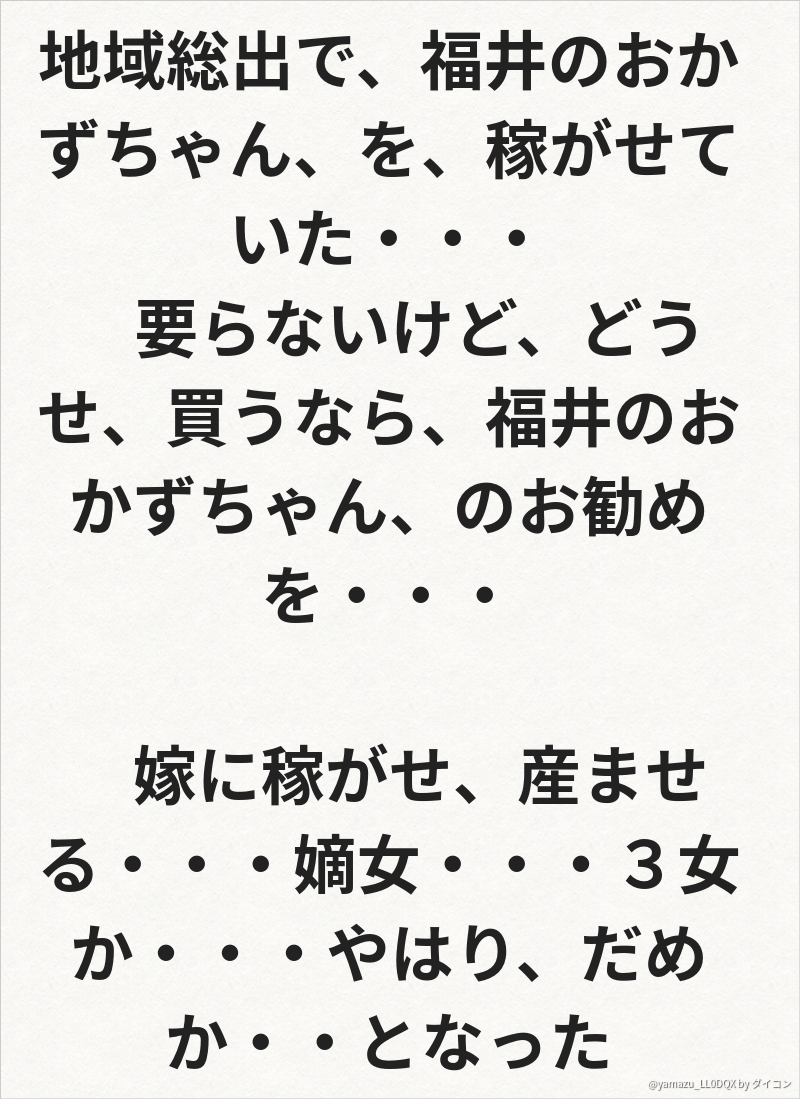 地域総出で、福井のおか
ずちゃん、を、稼がせて
いた・・・
　要らないけど、どう
せ、買うなら、福井のお
かずちゃん、のお勧め
を・・・
　嫁に稼がせ、産ませ
る・・・嫡女・・・３女
か・・・やはり、だめ
か・・となった
@yamazu_LL0DQX by ダイコン